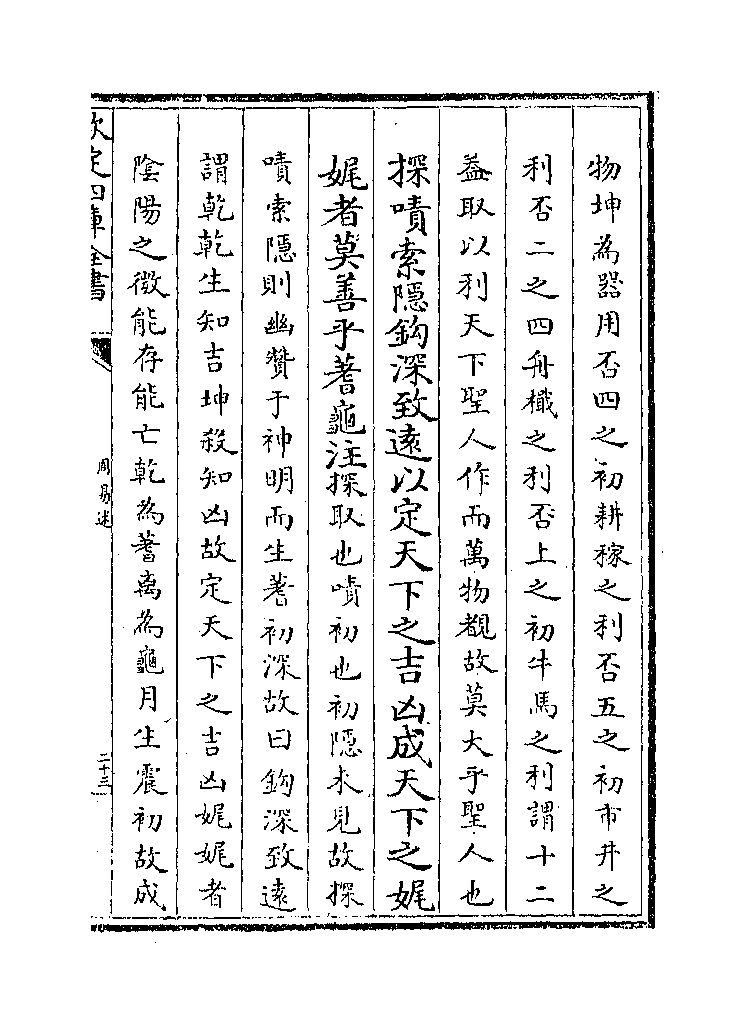 物坤為器用否四之初耕稼之利否五之初市井之
利否二之四舟檝之利否上之初牛馬之利謂十二
蓋取以利天下聖人作而萬物覩故莫大乎聖人也
探嘖索隱鈎深致遠以定天下之吉凶成天下之娓
娓者莫善乎蓍龜注探取也嘖初也初隱未見故探
嘖索隱則幽贊于神明而生蓍初深故曰鈎深致遠
謂乾乾生知吉坤殺知凶故定天下之吉凶娓娓者
陰陽之微能存能亡乾為蓍离為龜月生震初故成
欽定四庫全書
周易述
二十三